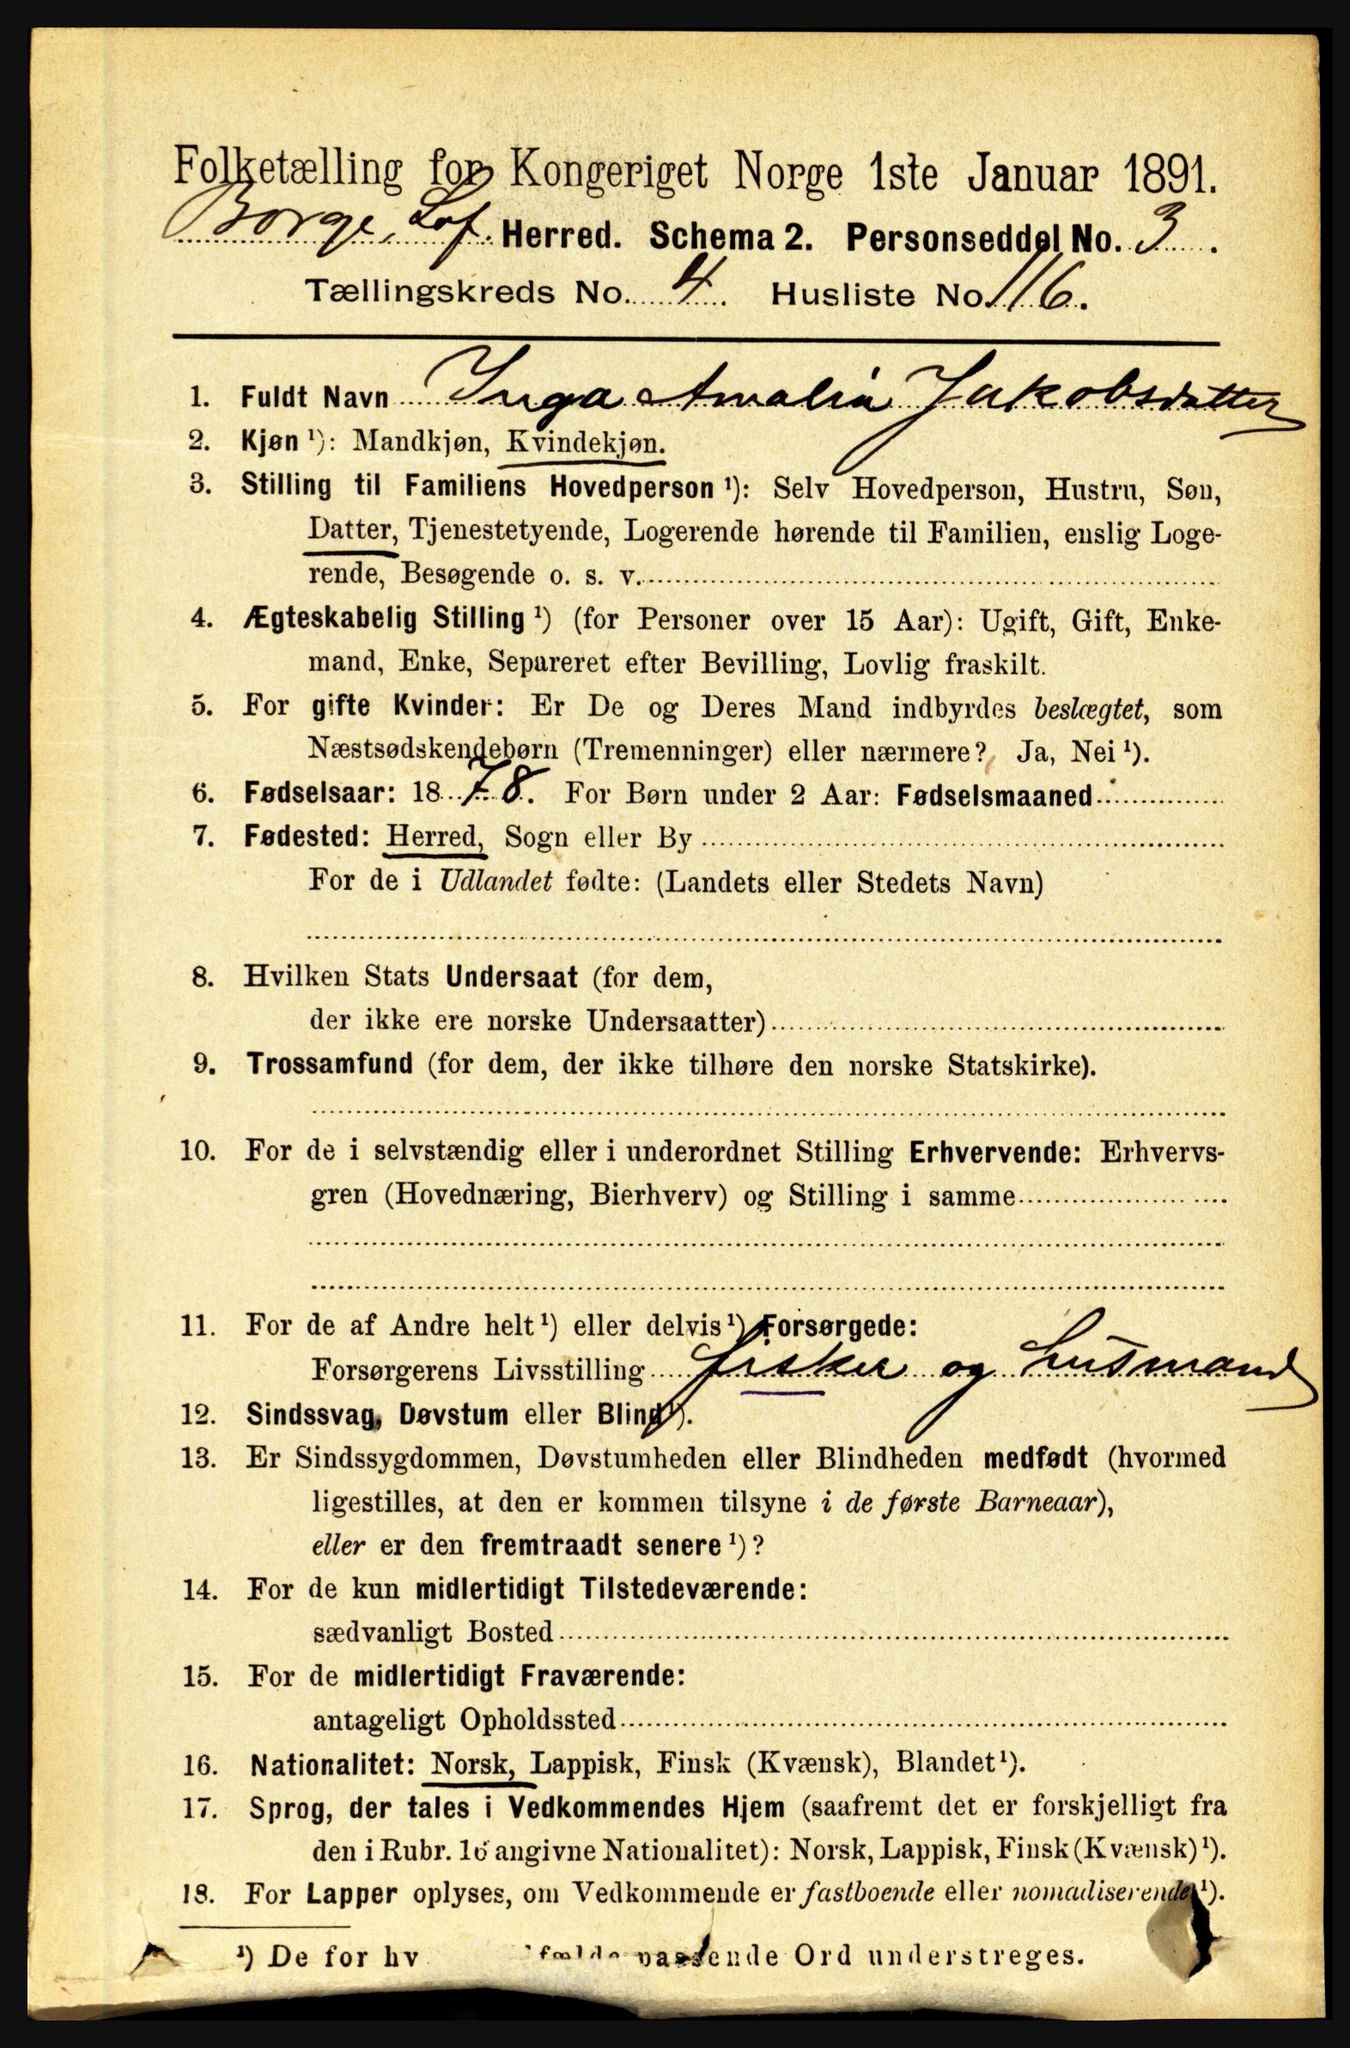 Folketælling for Kongeriget Norge 1ste Januar 1891.
Borge, Lof. Herred. Schema 2. Personseddel No. 3.
Tællingskreds No. 4. Husliste No. 116.
1. Fuldt Navn Inga Amalia Jakobsdatter
2. Kjøn ¹): Mandkjøn, Kvindekjøn.
3. Stilling til Familiens Hovedperson ¹): Selv Hovedperson, Hustru, Søn,
Datter, Tjenestetyende, Logerende hørende til Familien, enslig Loge-
rende, Besøgende o. s. v.
4. Ægteskabelig Stilling ¹) (for Personer over 15 Aar): Ugift, Gift, Enke-
mand, Enke, Separeret efter Bevilling, Lovlig fraskilt.
5. For gifte Kvinder: Er De og Deres Mand indbyrdes beslægtet, som
Næstsødskendebørn (Tremenninger) eller nærmere? Ja, Nei ¹).
6. Fødselsaar: 1878. For Børn under 2 Aar: Fødselsmaaned
7. Fødested: Herred, Sogn eller By
For de i Udlandet fødte: (Landets eller Stedets Navn)
8. Hvilken Stats Undersaat (for dem,
der ikke ere norske Undersaatter)
9. Trossamfund (for dem, der ikke tilhøre den norske Statskirke).
10. For de i selvstændig eller i underordnet Stilling Erhvervende: Erhvervs-
gren (Hovednæring, Bierhverv) og Stilling i samme
11. For de af Andre helt ¹) eller delvis ¹) Forsørgede:
Forsørgerens Livsstilling fisker og husmand
12. Sindssvag, Døvstum eller Blind ¹).
13. Er Sindssygdommen, Døvstumheden eller Blindheden medfødt (hvormed
ligestilles, at den er kommen tilsyne i de første Barneaar),
eller er den fremtraadt senere ¹)?
14. For de kun midlertidigt Tilstedeværende:
sædvanligt Bosted
15. For de midlertidigt Fraværende:
antageligt Opholdssted
16. Nationalitet: Norsk, Lappisk, Finsk (Kvænsk), Blandet ¹).
17. Sprog, der tales i Vedkommendes Hjem (saafremt det er forskjelligt fra
den i Rubr. 16 angivne Nationalitet): Norsk, Lappisk, Finsk (Kvænsk) ¹).
18. For Lapper oplyses, om Vedkommende er fastboende eller nomadiserende ¹).
¹) De for hv fælde passende Ord understreges.